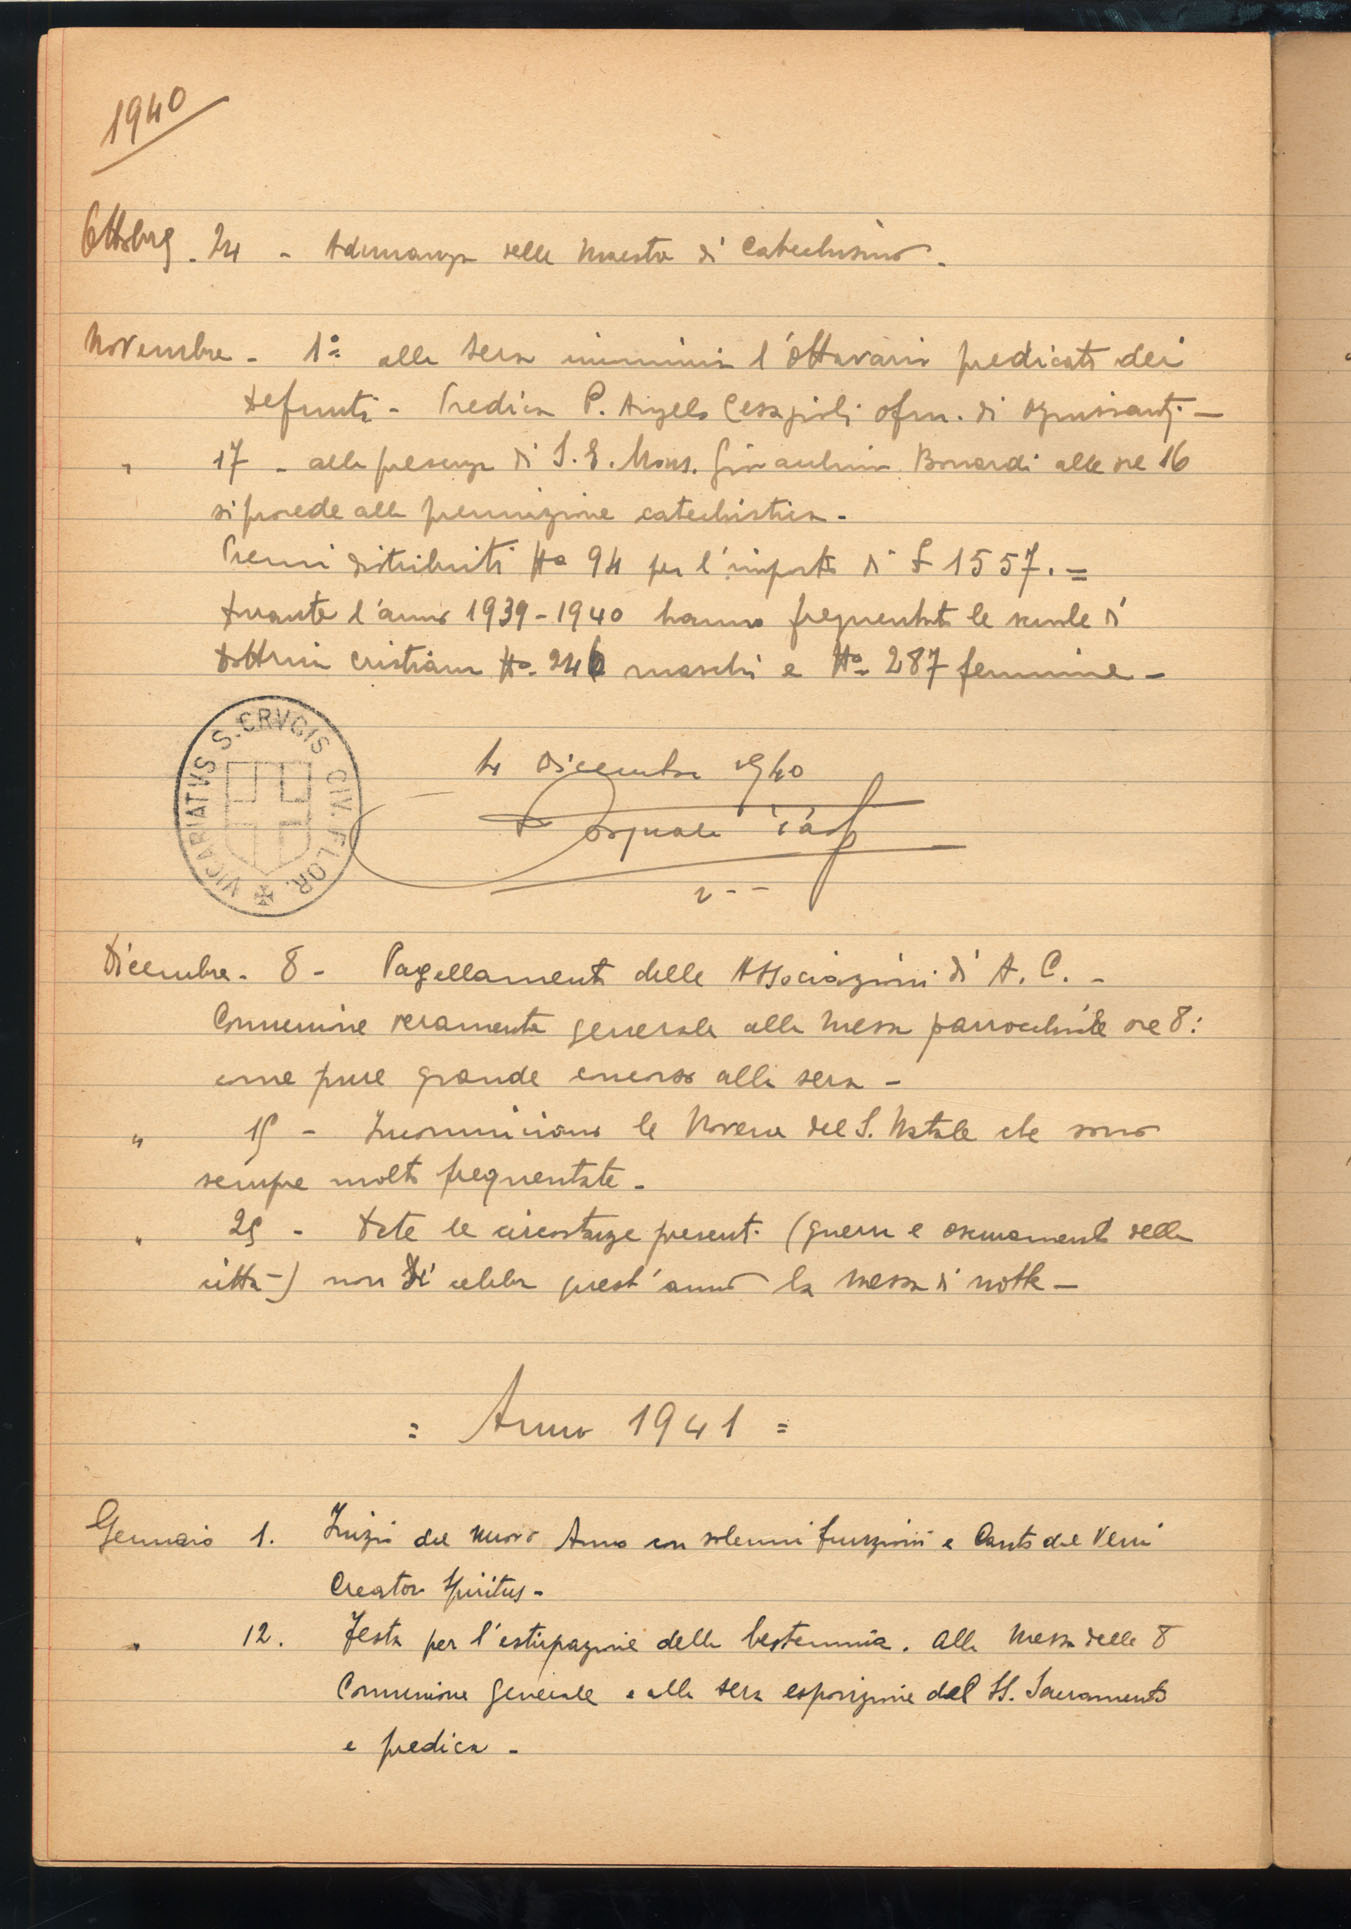 1940
Ottobre . 24 - Adunanza delle Maestre di Catechismo .
Novembre - 1º alla sera incomincia l'Ottavario predicato dei
defunti - Predica P. Angelo ofm. di Ognissanti -
" 17 - alla presenza di S. E. Mons. Gioacchino Bonardi alle ore 16
si procede alla premiazione catechistica -
Premi distribuiti Nº 94 per l'importo di £ 1557. =
Durante l'anno 1939-1940 hanno frequentato le scuole di
dottrina cristiana Nº 246 maschi e Nº 287 femmine -
VICARIATVS S. CRVCIS CIV. FLOR.
4 Dicembre 1940
Dicembre - 8 - Pagellamento delle Associazioni di A. C. -
Comunione veramente generale alla messa parrocchiale ore 8:
come pure grande concorso alla sera -
" 15 - Incominciano le Novene del S. Natale che sono
sempre molto frequentate -
" 25 - Date le circostanze presenti (guerra e oscuramento della
città-) non si celebra quest'anno la messa di notte -
= Anno 1941 =
Gennaio 1. Inizio del nuovo Anno con solenni funzioni e Canto del Veni
Creator Spiritus -
" 12. Festa per l'estirpazione della bestemmia. Alla Messa delle 8
Comunione generale e alla sera esposizione del SS. Sacramento
e predica -